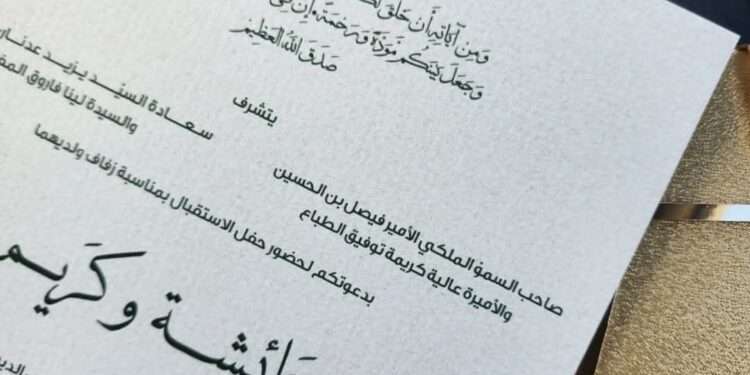 وَمِنْ آيَاتِهِ أَنْ خَلَقَ
وَجَعَلَ بَيْنَكُم مَّوَدَّةً وَرَحْمَةً إِنَّ فِي
صَدَقَ اللهُ العَظِيم
يتشرف
صاحب السمو الملكي الأمير فيصل بن الحسين
والأميرة عالية كريمة توفيق الطباع
سعادة السيد يزيد عدنان
والسيدة لينا فاروق
بدعوتكم لحضور حفل الاستقبال بمناسبة زفاف ولديهما
عائشة وكريم